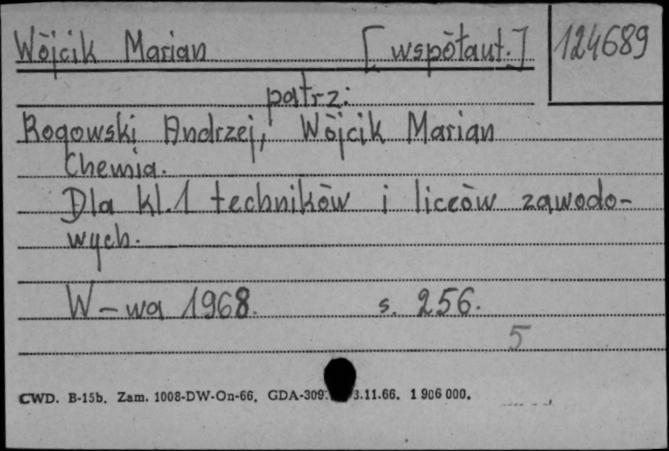 Wójcik Marian [współaut.] 124689
patrz:
Rogowski Andrzej, Wójcik Marian
Chemia.
Dla kl. 1 techników i liceów zawodo-
wych.
W-wa 1968. s. 256.
5
CWD. B-15b. Zam. 1008-DW-On-66. GDA-309 3.11.66. 1 906 000.